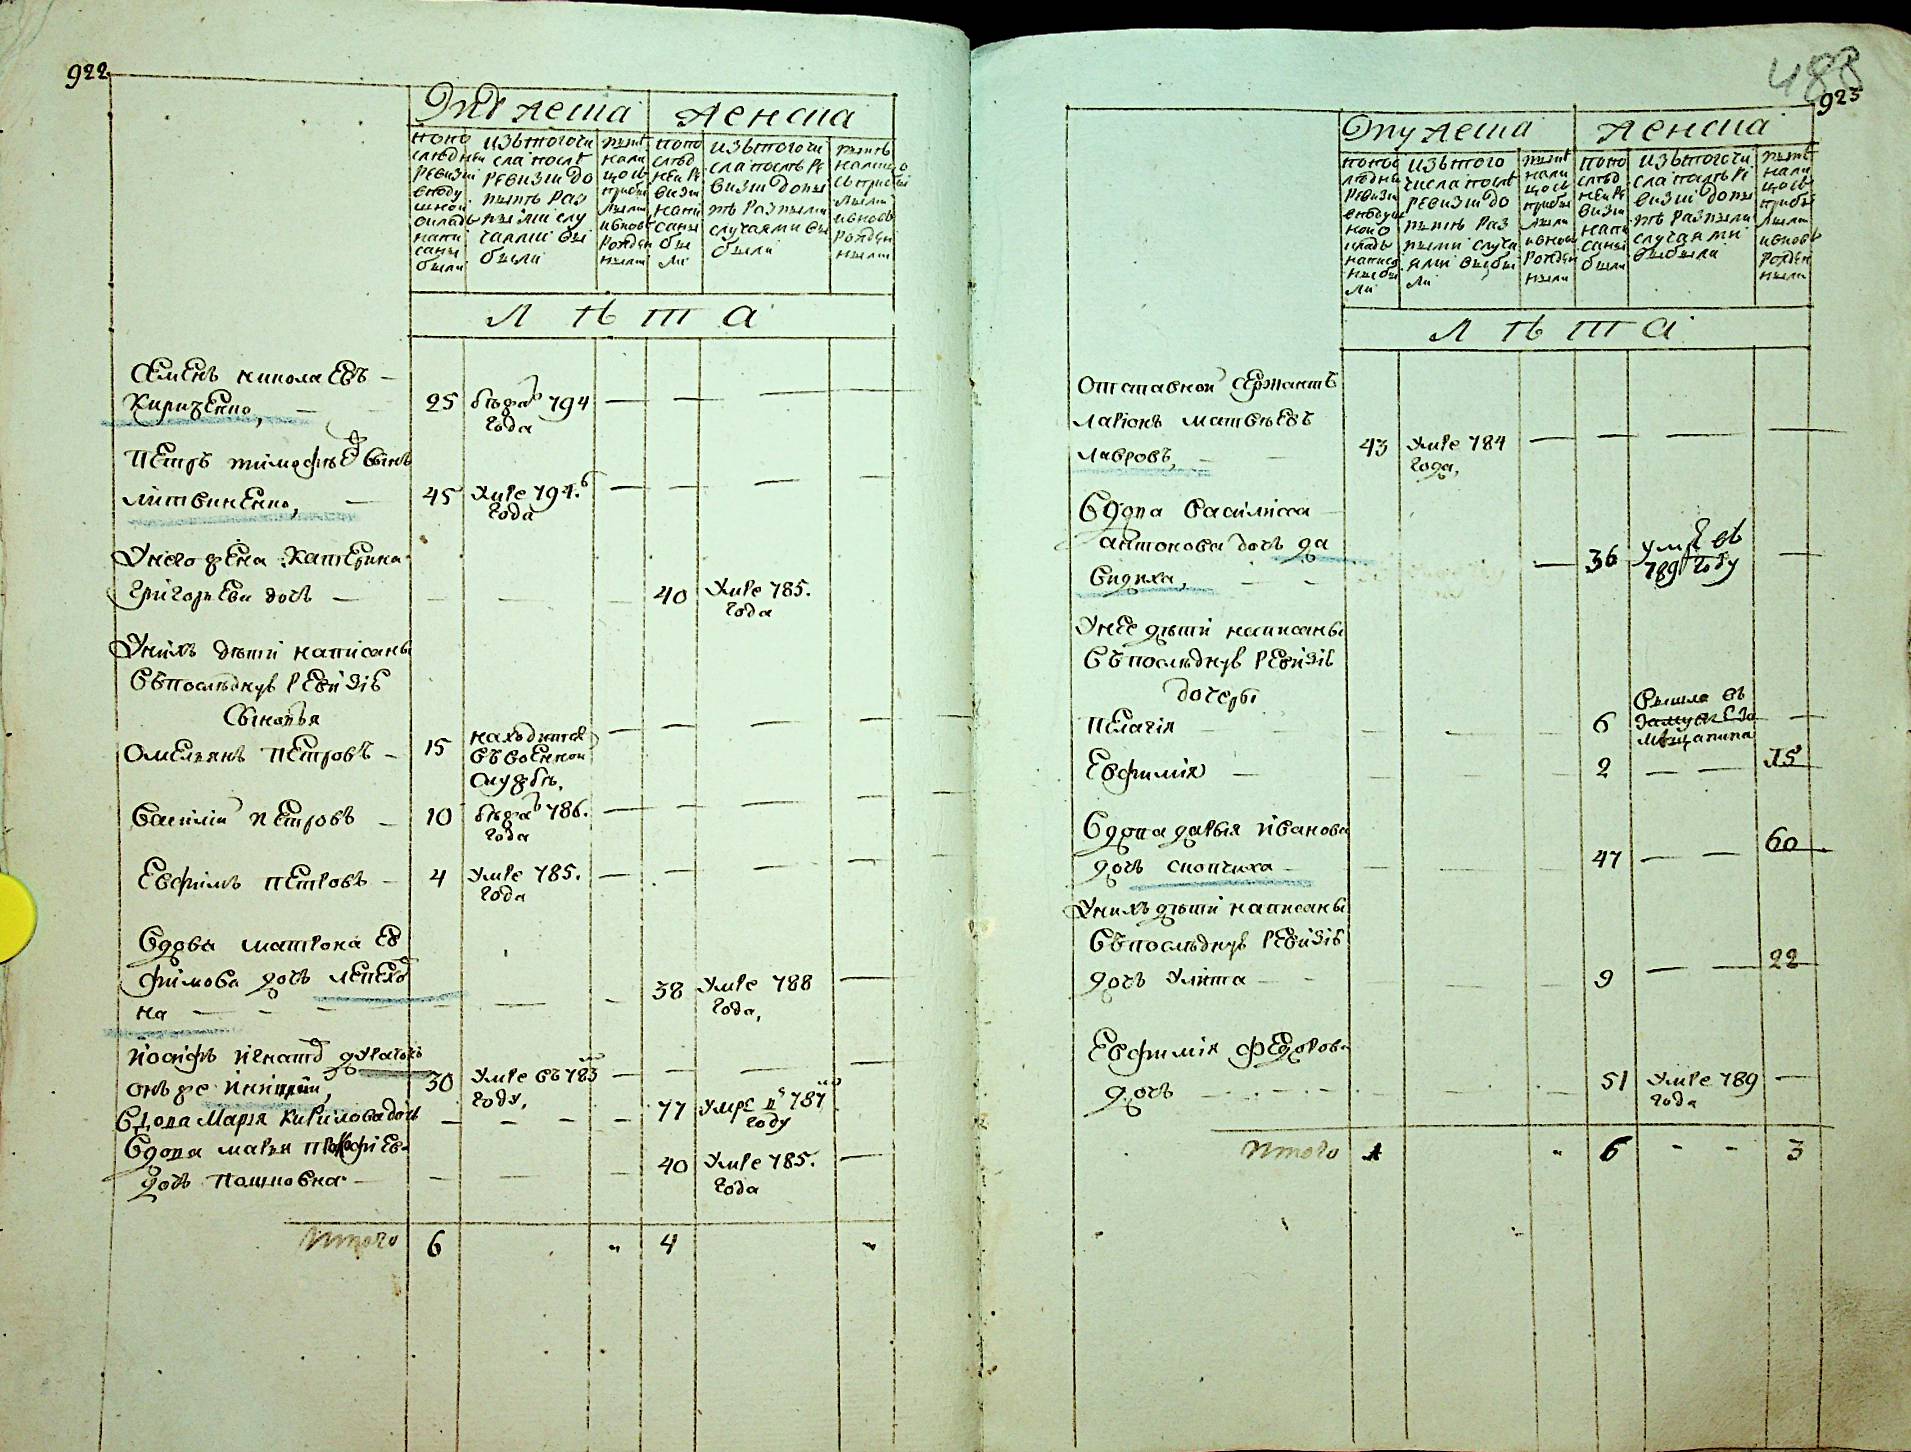 922
Мужеска Женска
попо
слѣдней
ревизіи
въподу
шной
окладъ
напи
саны
были
изътогочи
сла послѣ
ревизіи до
нынѣ раз
ными слу
чаями вы
были
нынѣ
нали
цо съ
прибы
лыми
ивновь
рожден
ными
попо
слѣд
ней ре
визіи
напи
саны
бы
ли
изътогочи
сла послѣ ре
визіи доны
нѣ разными
случаями вы
были
нынѣ
налицо
съ прибы
лыми
ивновь
рожден
ными
Л ѣ т а
Семенъ николаевъ
Кириченко, 25 бѣжалъ 794
года
Петръ тимофѣевъ сынъ
литвиненко, 45 Умре 794.
года
Унего жена Катерина
Григорьева дочь 40 Умре 785.
года
Унихъ дѣти написаны
Въпослѣднув ревизів
Сыновья
Омельянъ Петровъ 15 находится
въ военной
службѣ.
Василій Петровъ 10 бѣжалъ 786.
года
Евфимъ Петровъ 4 Умре 785.
года
Вдова матрона Ев
фимова дочь лепехо
на 38 Умре 788
года,
Иосифъ Игнатов
30 Умре въ 783
году,
Вдова Марія Кирилова дочь 77 умре въ 787
году
Вдова марья Прокофіев
дочь 40 Умре 785.
года
Итого 6 4
488
923
Мужеска Женска
попос
лѣдней
ревизіи
въподуш
ной о
кладъ
написа
ны бы
ли
изътого
числа послѣ
ревизіи до
нынѣ раз
ными случа
ями выбы
ли
нынѣ
нали
цо съ
прибы
лыми
ивновь
рожден
ными
попо
слѣд
ней ре
визіи
напи
саны
были
изътогочи
сла послѣ ре
визіи доны
нѣ разными
случаями
выбыли
нынѣ
нали
цо съ
прибы
лыми
ивновь
рожден
ными
Л ѣ т а
Отставной Сержантъ
ларіонъ матвѣевъ
лавровъ, 43 Умре 784
года,
Вдова Василиса
антонова дочь да
видиха, 36 умре въ
789 году
Унее дѣти написаны
Въпослѣднув ревизів
дочери
Пелагія 6 Вышла въ
замужъ за
мѣщанина
Евфимія 2 15
Вдова дарья Иванова
дочь скопчиха 47 60
Унихъ дѣти написаны
Въпослѣднув ревизів
дочь Улита 9 22
Евфимія Федорова
дочь 51 Умре 789
года
Итого 1 6 3